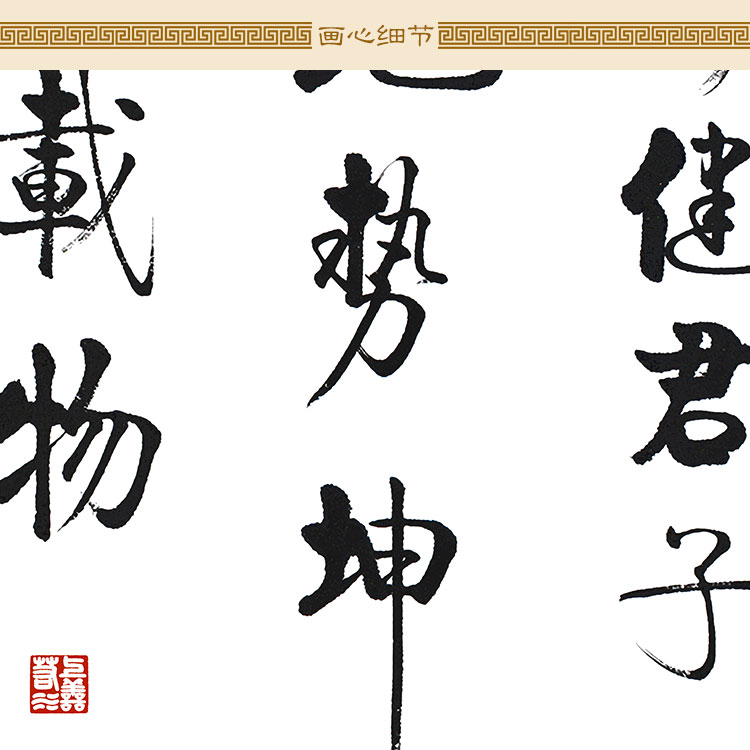 画心细节
健君子
势坤
載物